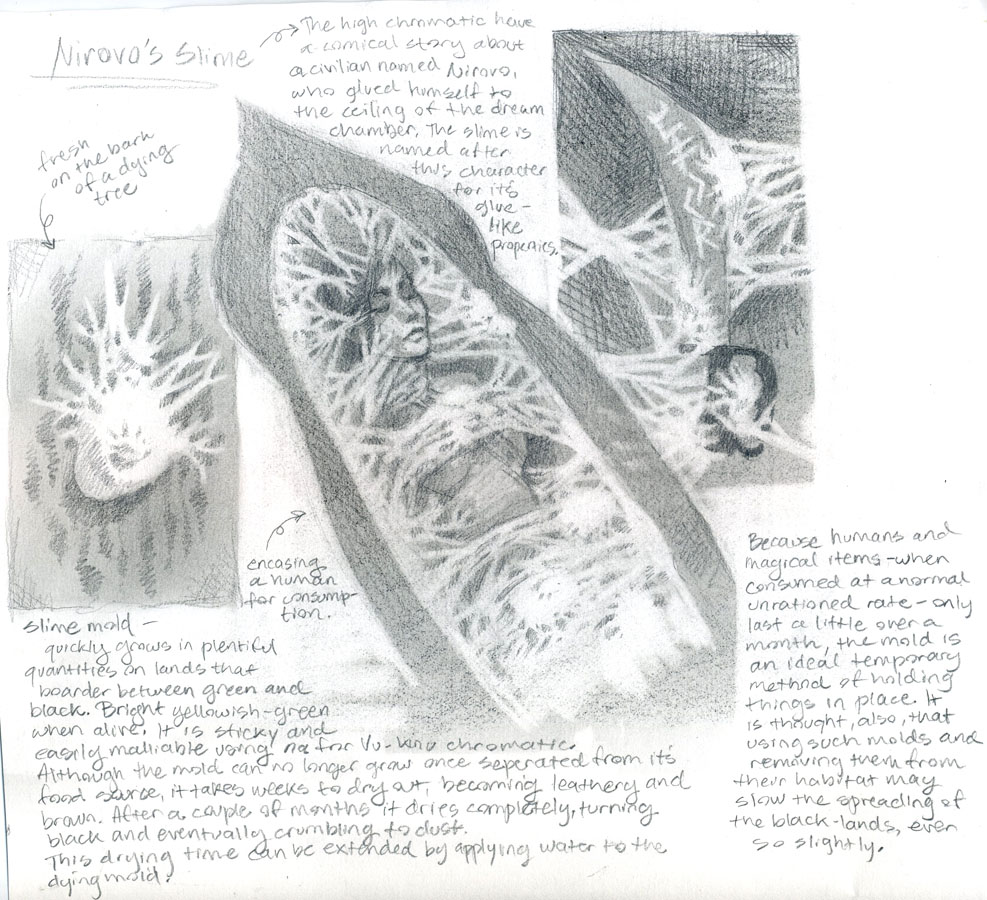 Nirovo's Slime
The high chromatic have
a comical story about
a civilian named Nirovo,
who glued himself to
the ceiling of the dream
chamber. The slime is
named after
this character
for it's
glue-
like
properties.
fresh
on the bark
of a dying
tree
encasing
a human
for consump-
tion.
slime mold -
quickly grows in plentiful
quantities on lands that
boarder between green and
black. Bright yellowish-green
when alive. It is sticky and
easily malliable using na for Vu-kno chromatic.
Although the mold can no longer grow once seperated from it's
food source, it takes weeks to dry out, becoming leathery and
brown. After a couple of months it dries completely, turning
black and eventually crumbling to dust.
This drying time can be extended by applying water to the
dying mold.
Because humans and
magical items - when
consumed at a normal
unrationed rate - only
last a little over a
month, the mold is
an ideal temporary
method of holding
things in place. It
is thought, also, that
using such molds and
removing them from
their habitat may
slow the spreading of
the black-lands, even
so slightly.